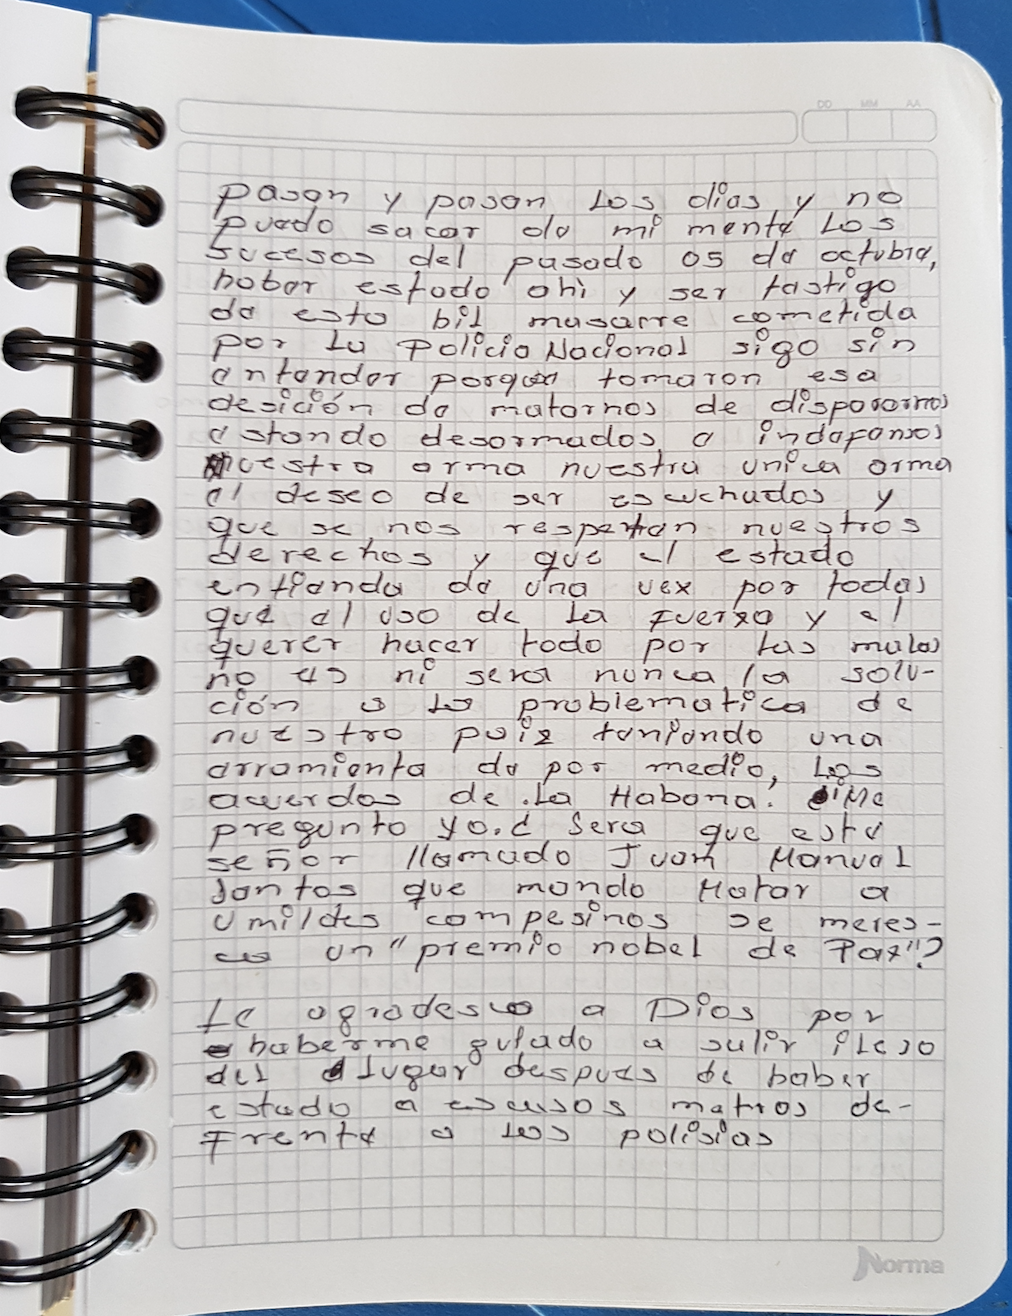 DD MM AA
pasan y pasan los dias y no
puedo sacar de mi mente los
sucesos del pasado 05 de octubre,
haber estado ahi y ser testigo
de esto bil masacre cometida
por la Policia Nacional sigo sin
entender porque tomaron esa
desición de matarnos de dispararnos
estando desarmados e indefensos
nuestra arma nuestra unica arma
el deseo de ser escuchados y
que se nos respetan nuestros
derechos y que el estado
entienda de una vex por todas
que el uso de la fuerxa y el
querer hacer todo por las malas
no es ni sera nunca la solu-
ción a la problematica de
nuestro paiz teniendo una
arramienta de por medio, los
acuerdos de la Habana. Me
pregunto yo. ¿ Sera que este
señor llamado Juan Manuel
Santos que mando Matar a
umildes campesinos se meres-
ce un "premio nobel de Pax"?
Le agradesco a Dios por
haberme guiado a salir ileso
del lugar despues de haber
estado a escasos metros de-
frente a los polisias
Norma